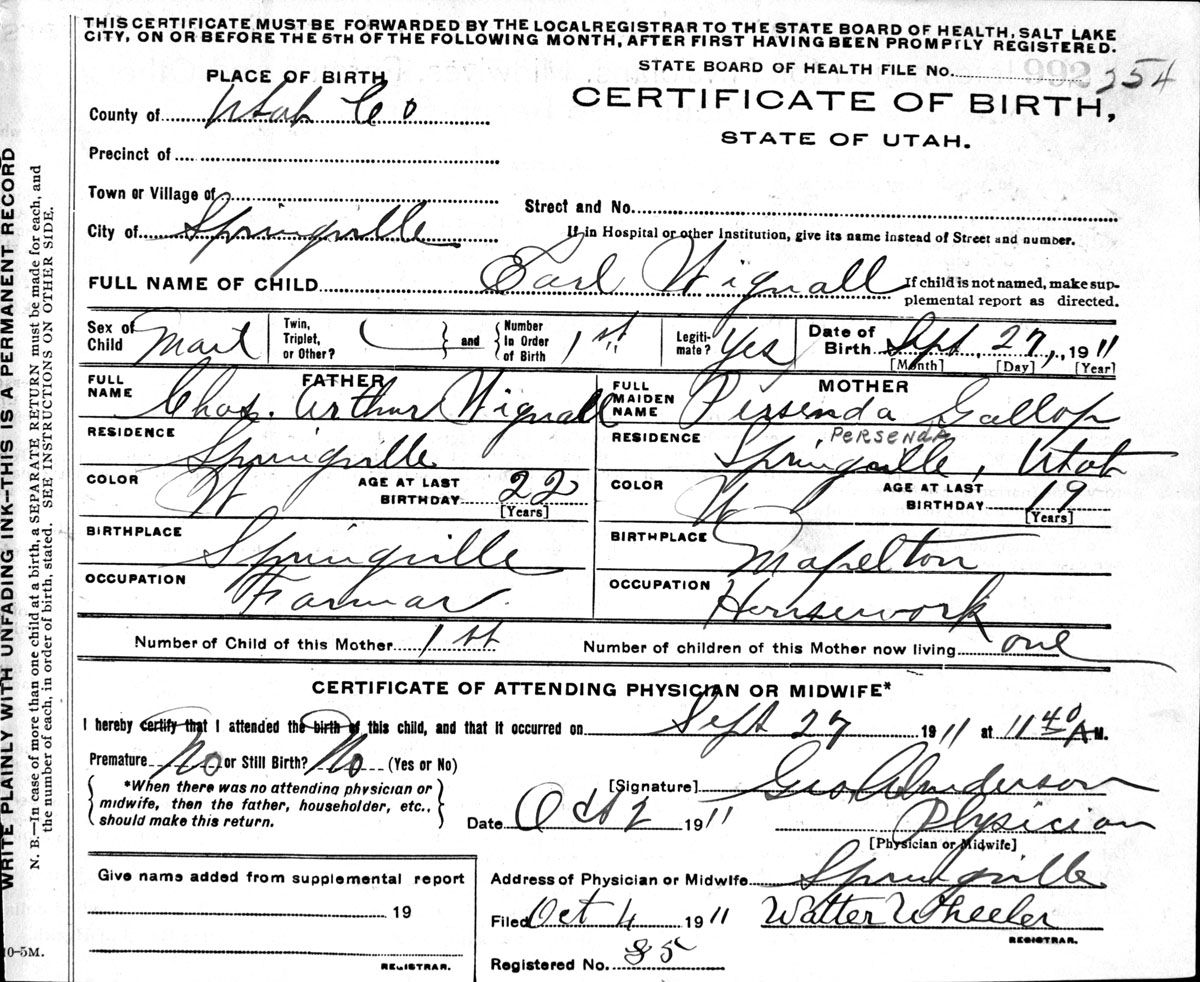 THIS CERTIFICATE MUST BE FORWARDED BY THE LOCAL REGISTRAR TO THE STATE BOARD OF HEALTH, SALT LAKE
CITY, ON OR BEFORE THE 5TH OF THE FOLLOWING MONTH, AFTER FIRST HAVING BEEN PROMPTLY REGISTERED.
PLACE OF BIRTH
STATE BOARD OF HEALTH FILE No. 254
County of Utah Co
CERTIFICATE OF BIRTH,
STATE OF UTAH.
Precinct of
Town or Village of
Street and No.
City of Springville
If in Hospital or other Institution, give its name instead of Street and number.
FULL NAME OF CHILD Earl Wignall
If child is not named, make sup-
plemental report as directed.
Sex of Child Mail Twin, Triplet, or Other? and Number In Order of Birth 1st Legiti-mate? Yes Date of Birth Sept 27, 1911
[Month] [Day] [Year]
FULL NAME FATHER Chas. Arthur Wignall
FULL MAIDEN NAME MOTHER Persenda Gallop
PERSENDA
RESIDENCE Springville
RESIDENCE Springville, Utah
COLOR W AGE AT LAST BIRTHDAY 22 [Years]
COLOR W AGE AT LAST BIRTHDAY 19 [Years]
BIRTHPLACE Springville
BIRTHPLACE Mapelton
OCCUPATION Farmar
OCCUPATION Housework
Number of Child of this Mother 1st
Number of children of this Mother now living one
CERTIFICATE OF ATTENDING PHYSICIAN OR MIDWIFE*
I hereby certify that I attended the birth of this child, and that it occurred on Sept 27 1911 at 11 40 A M.
Premature No or Still Birth? No (Yes or No)
*When there was no attending physician or
midwife, then the father, householder, etc.,
should make this return.
[Signature] Geo. Anderson
Date Oct 2 1911
Physician
[Physician or Midwife]
Give name added from supplemental report
19
REGISTRAR.
Address of Physician or Midwife Springville
Filed Oct 4 1911 Walter Wheeler
REGISTRAR.
Registered No. 85
WRITE PLAINLY WITH UNFADING INK--THIS IS A PERMANENT RECORD
N. B.—In case of more than one child at a birth, a SEPARATE RETURN must be made for each, and
the number of each, in order of birth, stated. SEE INSTRUCTION ON OTHER SIDE.
10-5M.